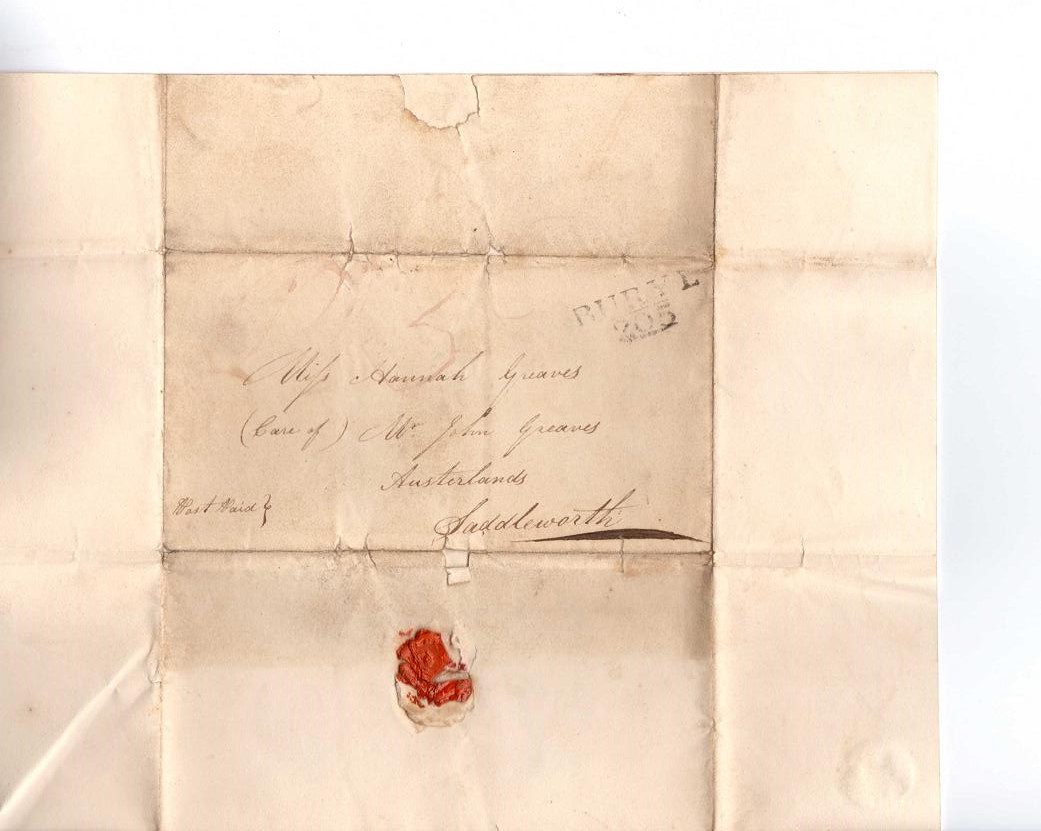 BURY L
205
5
Miss Hannah Greaves
(Care of) Mr John Greaves
Austerlands
Post Paid
Saddleworth